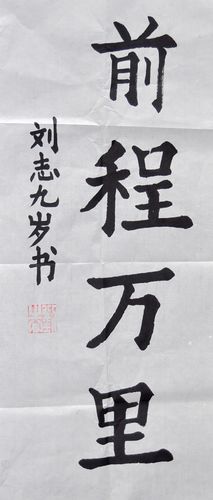 前程万里
刘志九岁书